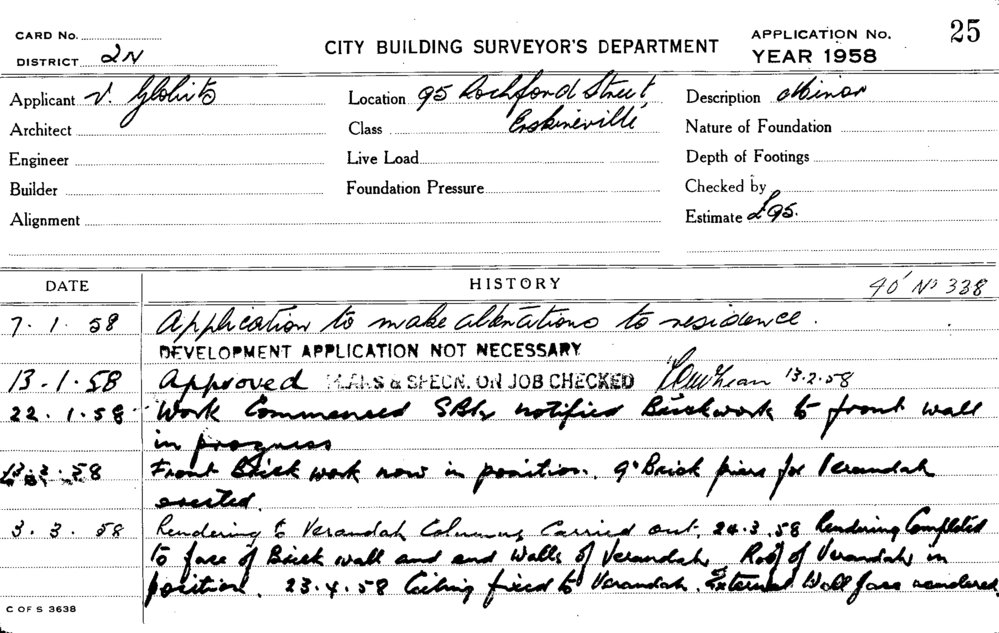 CARD No.
DISTRICT 2N
CITY BUILDING SURVEYOR'S DEPARTMENT
APPLICATION No. 25
YEAR 1958
Applicant V.
Location 95 Rochford Street,
Erskineville
Description Minor
Architect
Class
Nature of Foundation
Engineer
Live Load
Depth of Footings
Builder
Foundation Pressure
Checked by
Alignment
Estimate £95.
DATE
HISTORY
40' No 338
7. 1. 58 Application to make alterations to residence.
DEVELOPMENT APPLICATION NOT NECESSARY
13.1.58 Approved PLANS & SPECN. ON JOB CHECKED 13.2.58
22.1.58 Work Commenced notified Brickwork to front wall
in progress
58 Front Brick work now in position. 9" Brick piers for Verandah
erected.
3. 3. 58 Rendering to Verandah Columns Carried out. 24.3.58 Rendering Completed
to face of Brick wall and end Walls of Verandah, Roof of Verandah in
position. 23.4.58 Ceiling fixed to Verandah. External Wall face rendered
C OF S 3638